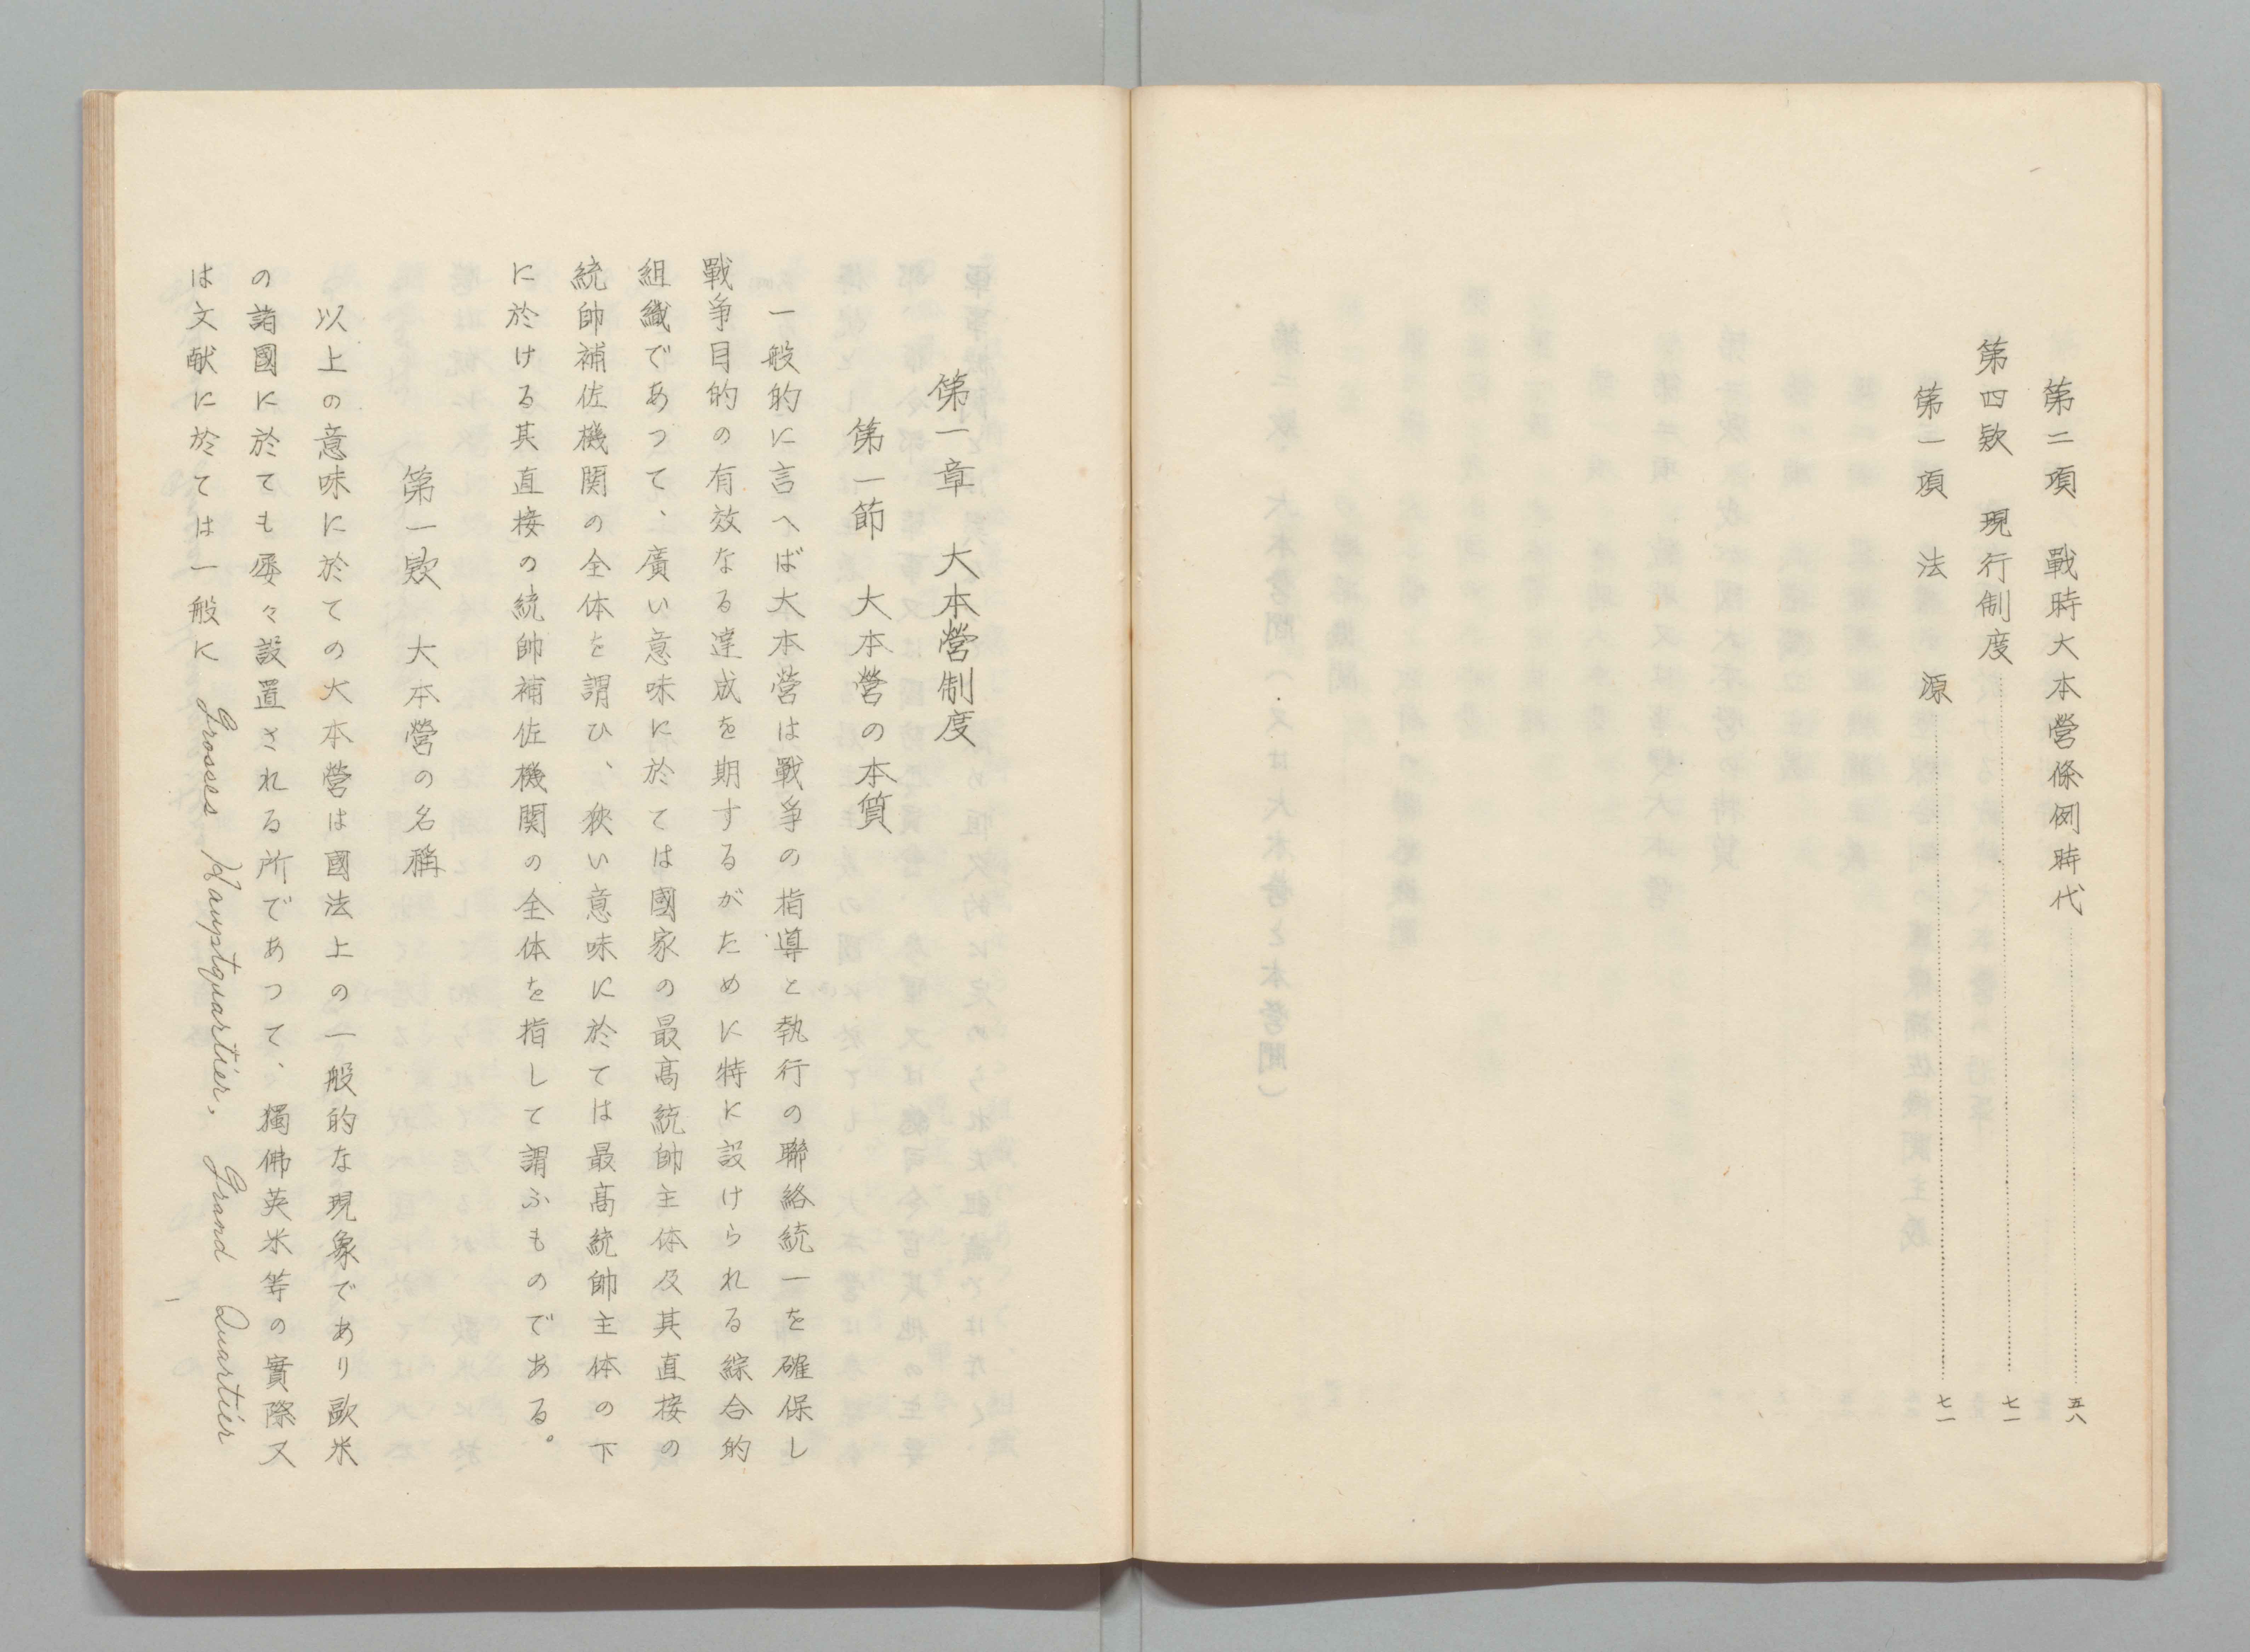 第二項　戰時大本營條例時代……五八
第四欵　現行制度……七一
第一項　法　源……七一
第一章　大本營制度
第一節　大本營の本質
一般的に言へば大本營は戰爭の指導と執行の聯絡統一を確保し
戰爭目的の有效なる達成を期するがために特に設けられる綜合的
組織であつて、廣い意味に於ては國家の最高統帥主体及其直接の
統帥補佐機関の全体を謂ひ、狹い意味に於ては最高統帥主体の下
に於ける其直接の統帥補佐機関の全体を指して謂ふものである。
第一欵　大本營の名稱
以上の意味に於ての大本營は國法上の一般的な現象であり歐米
の諸國に於ても屡々設置される所であつて、獨佛英米等の實際又
は文献に於ては一般に Grosses Hauptquartier, Grand Quartier
一